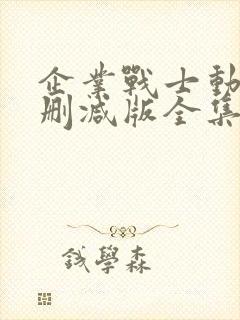 企業戰士動
刪減版全集
錢學森